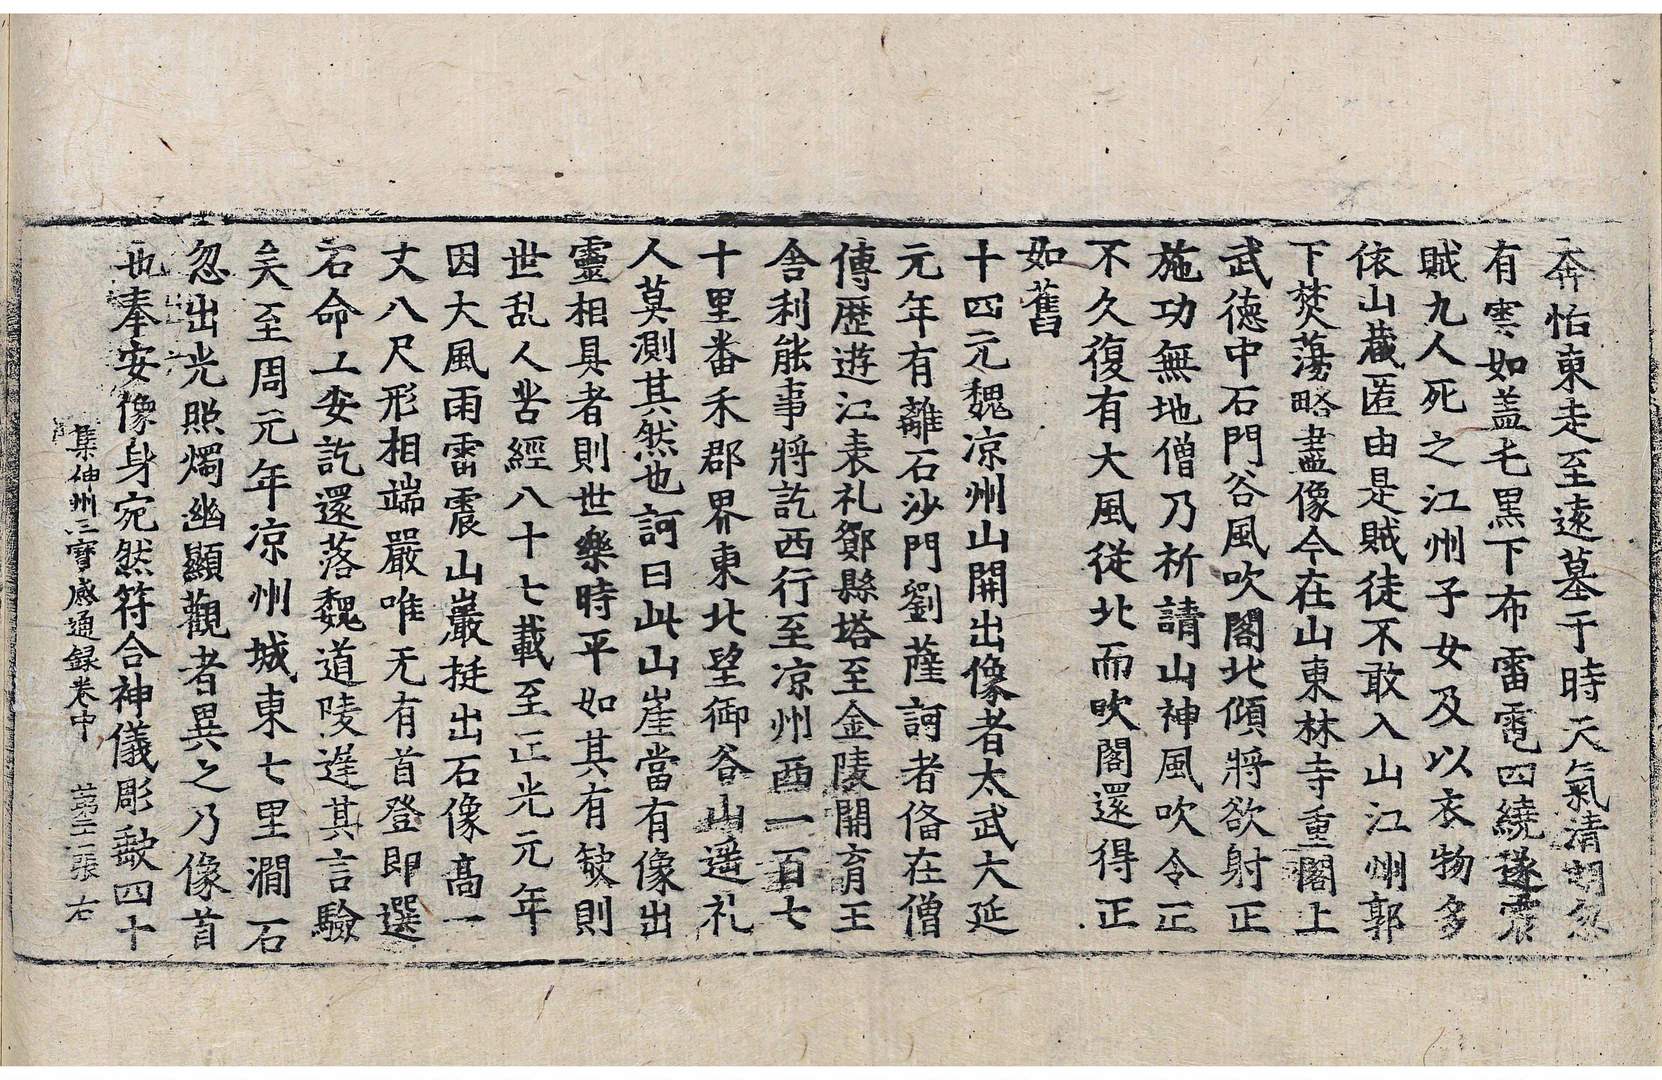 奔怡東走至遠墓于時天氣清朗忽
有雲如盖毛黒下布雷電四繞遂震
賊九人死之江州子女及以衣物多
依山藏匿由是賊徒不敢入山江州郭
下焚蕩略盡像今在山東林寺重閣上
武德中石門谷風吹閣北傾將欲射正
施功無地僧乃祈請山神風吹令正
不久復有大風從北而吹閣還得正
如舊
十四元魏凉州山開出像者太武大延
元年有離石沙門劉薩訶者俻在僧
傳歴遊江表礼鄮縣塔至金陵開育王
舎利能事將訖西行至凉州西一百七
十里番禾郡界東北望御谷山遥礼
人莫測其然也訶曰此山崖當有像出
靈相具者則世樂時平如其有缺則
世乱人苦經八十七載至正光元年
因大風雨雷震山巖挺出石像髙一
丈八尺形相端嚴唯无有首登即選
石命工安訖還落魏道陵遅其言驗
矣至周元年凉州城東七里澗石
忽出光照燭幽顯觀者異之乃像首
也奉安像身宛然符合神儀彫𧇊四十
集神州三寳感通録卷中 苐三張 右